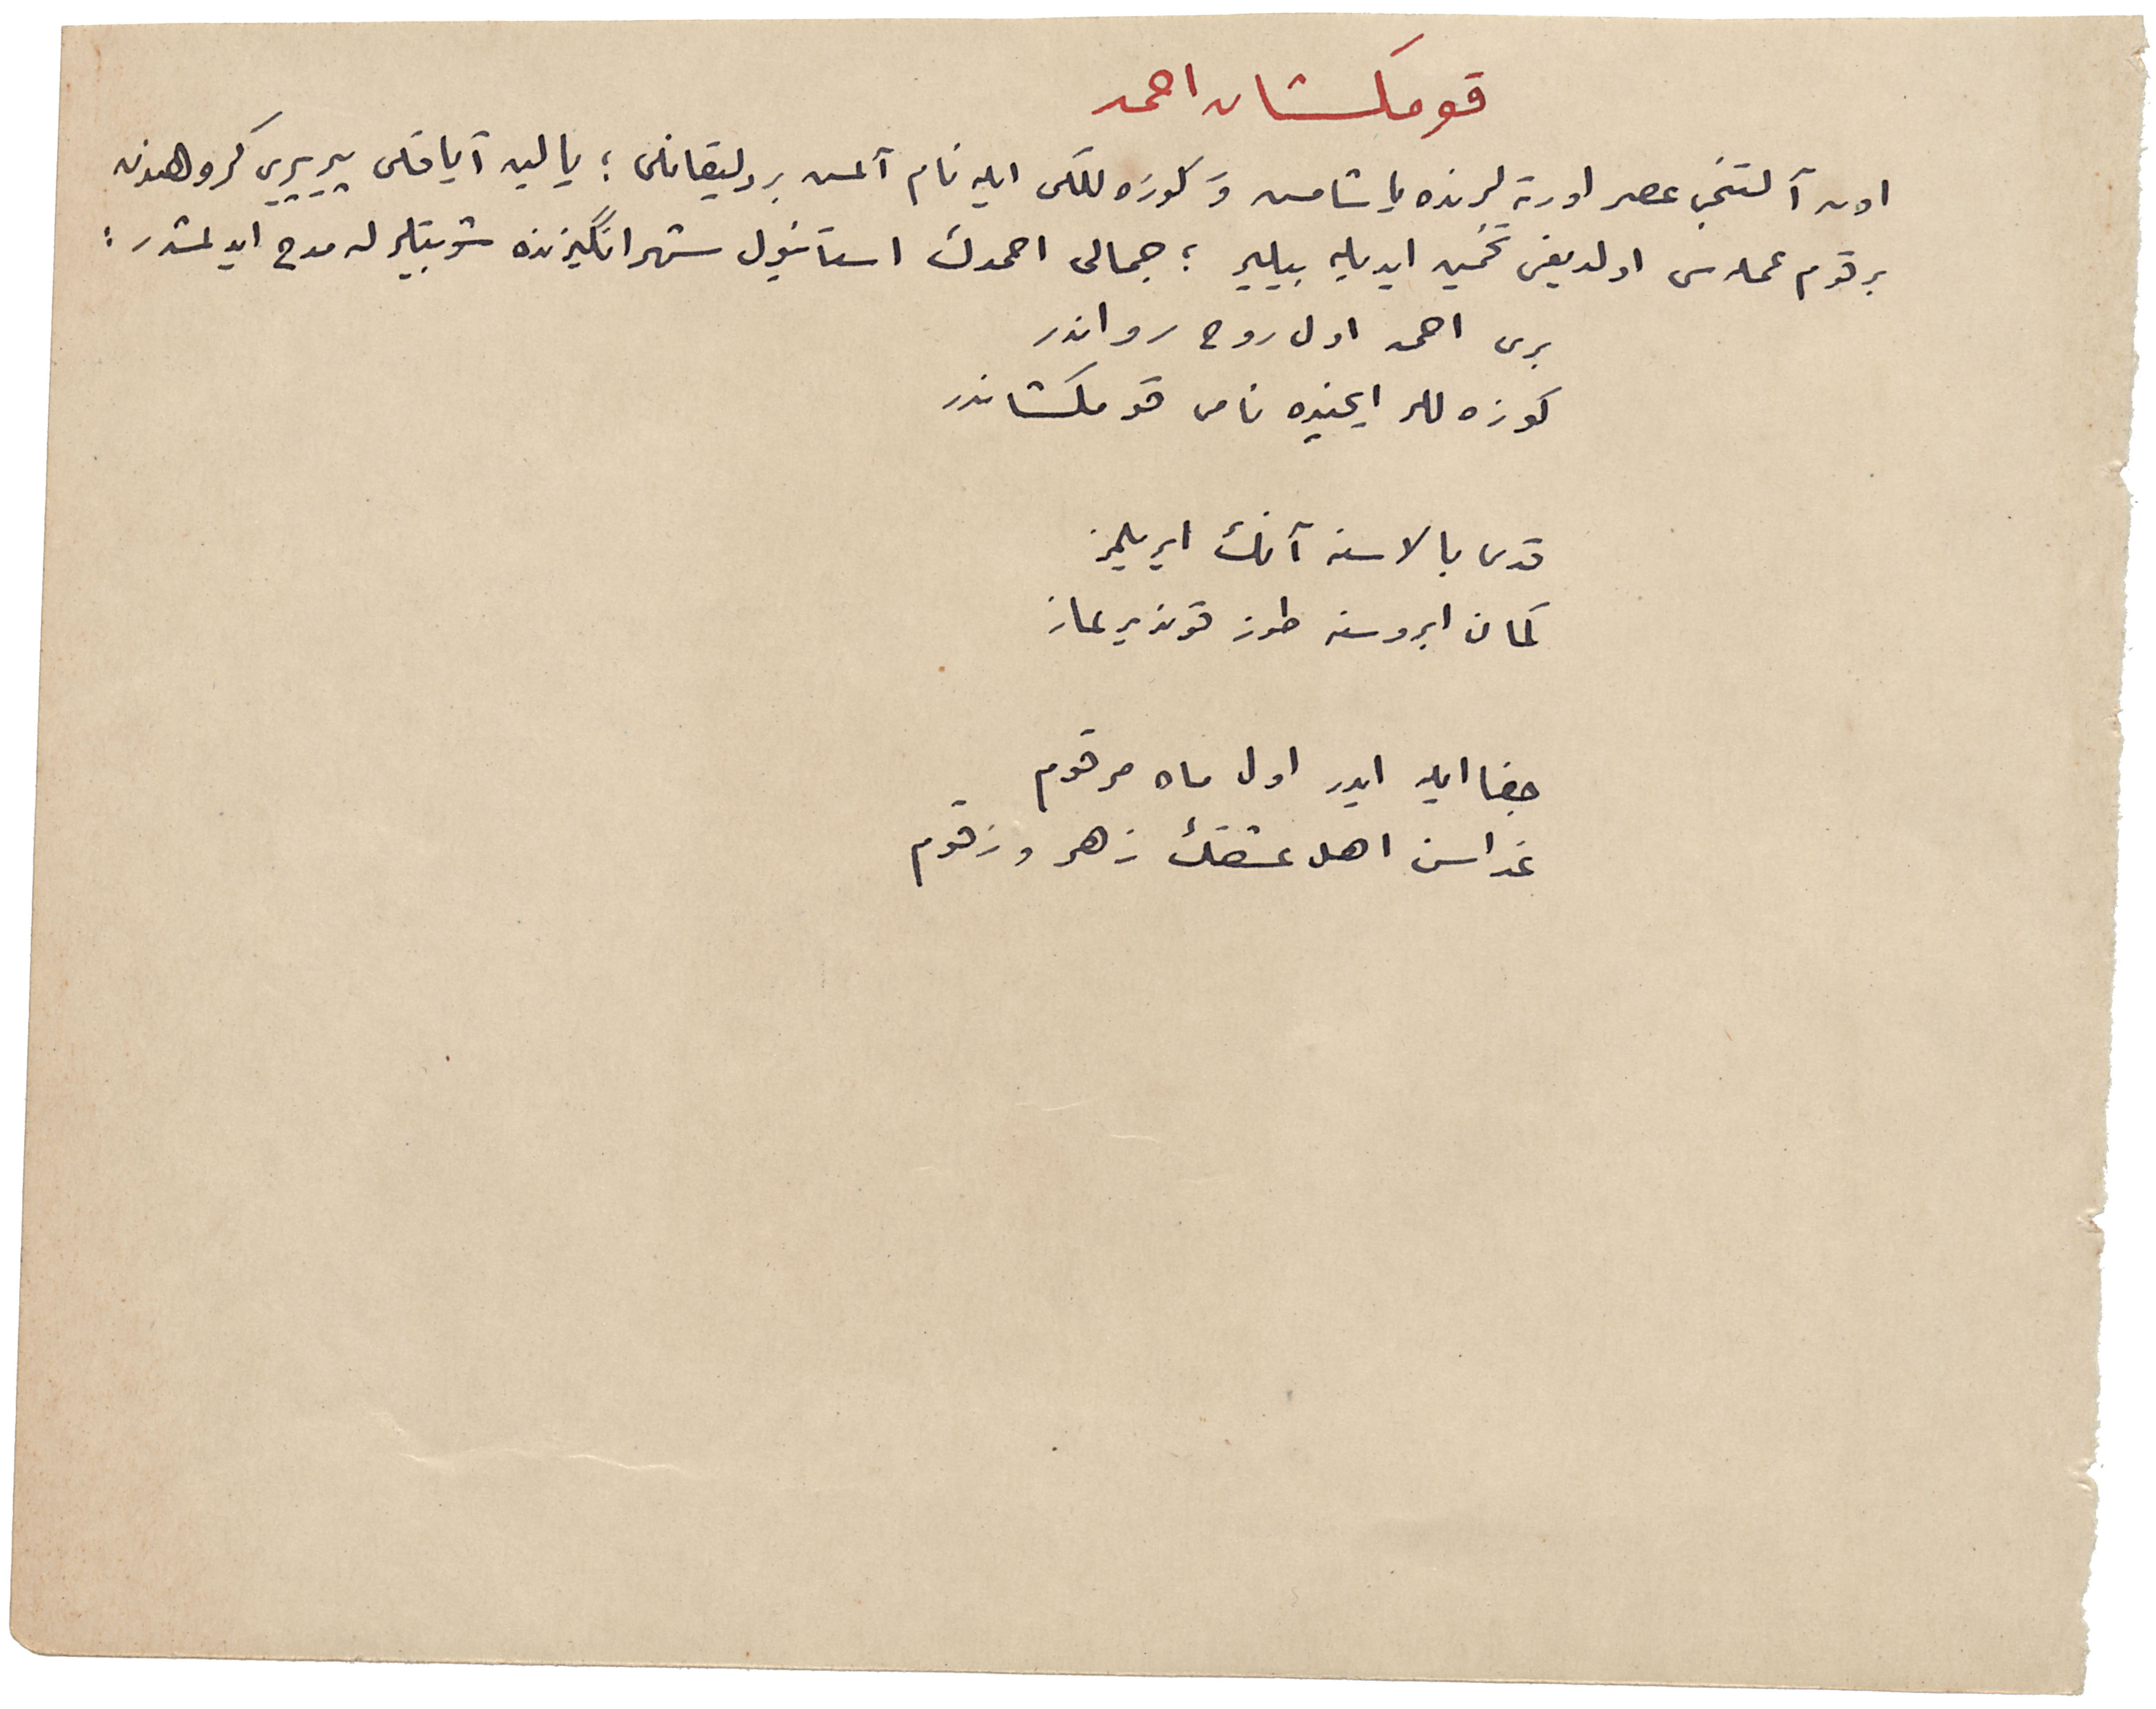 قومكشان احمد
اون آلتنجى عصر اورته لرنده ياشامش و كوزه للكى ايله نام آلمش بر دليقانلى ؛ يالين آياقلى پرپرى كروهندن
بر قوم عمله سى اولديغى تخمين ايديله بيلير ؛ جمالى احمدك استانبول شهرانگيزنده شو بيتلر له مدح ايدلمشدر :
برى احمد اول روح رواندر
كوزه للر ايچنده نامى قومكشاندر
قدى بالاسنه آنك ايريلمز
كمان ابروسنه طوز قوندیریلماز
جفا ايله ايدر اول ماه مرقوم
غداسن اهل عشقك زهر و زقوم